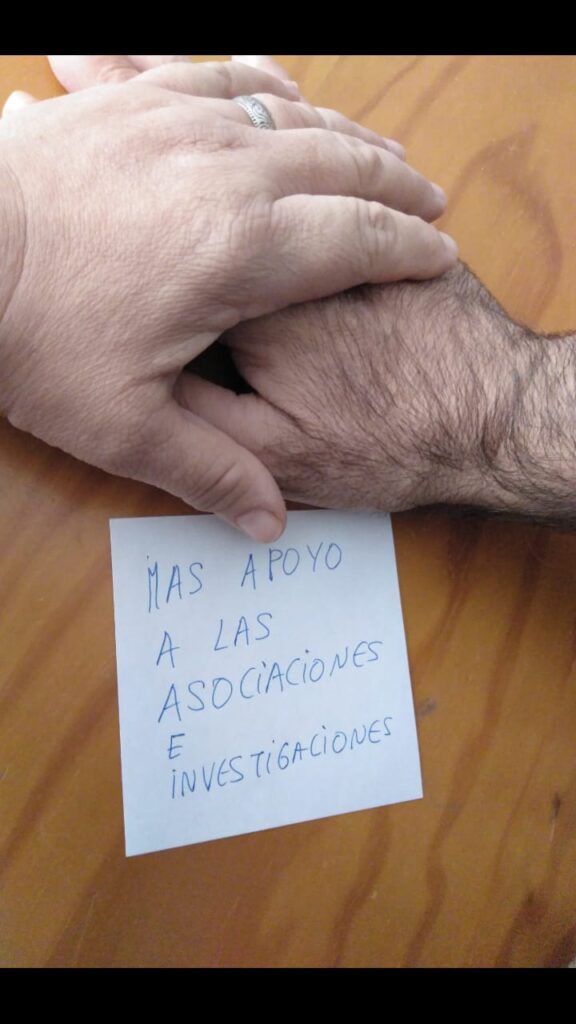 MAS APOYO
A LAS
ASOCiACiONES
E
iNVESTiGACiONES